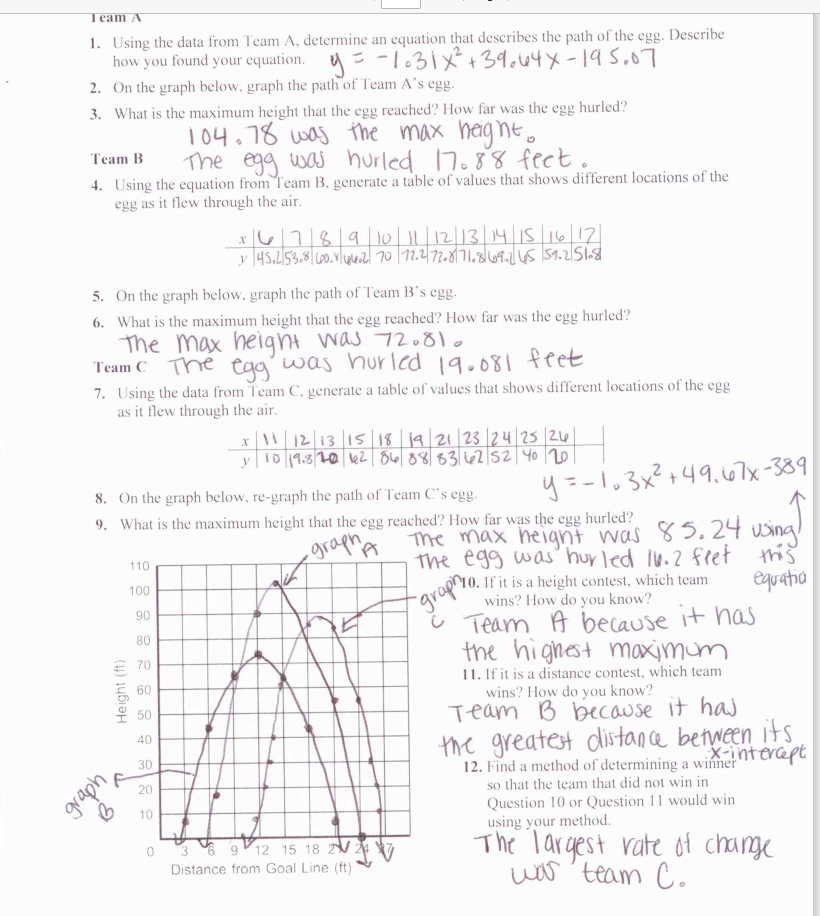 Team A
1. Using the data from Team A, determine an equation that describes the path of the egg. Describe
how you found your equation. y = -1.31x² + 39.64x - 195.07
2. On the graph below, graph the path of Team A's egg.
3. What is the maximum height that the egg reached? How far was the egg hurled?
104.78 was the max height.
Team B The egg was hurled 17.88 feet.
4. Using the equation from Team B, generate a table of values that shows different locations of the
egg as it flew through the air.
x 6 7 8 9 10 11 12 13 14 15 16 17
y 45.2 53.8 60.8 66.2 70 72.2 72.8 71.8 69.2 65 59.2 51.8
5. On the graph below, graph the path of Team B's egg.
6. What is the maximum height that the egg reached? How far was the egg hurled?
The max height was 72.81.
Team C The egg was hurled 19.081 feet
7. Using the data from Team C, generate a table of values that shows different locations of the egg
as it flew through the air.
x 11 12 13 15 18 19 21 23 24 25 26
y 10 19.8 20 62 86 88 83 62 52 40 20
y = -1.3x² + 49.67x - 389
8. On the graph below, re-graph the path of Team C's egg.
9. What is the maximum height that the egg reached? How far was the egg hurled?
The max height was 85.24 using
The egg was hurled 16.2 feet this
equatio
graph A
graph C
graph B
110
100
90
80
70
60
50
40
30
20
10
0 3 6 9 12 15 18 21 24 27
Height (ft)
Distance from Goal Line (ft)
10. If it is a height contest, which team
wins? How do you know?
Team A because it has
the highest maximum
11. If it is a distance contest, which team
wins? How do you know?
Team B because it has
the greatest distance between its
x-intercept
12. Find a method of determining a winner
so that the team that did not win in
Question 10 or Question 11 would win
using your method.
The largest rate of change
was team C.